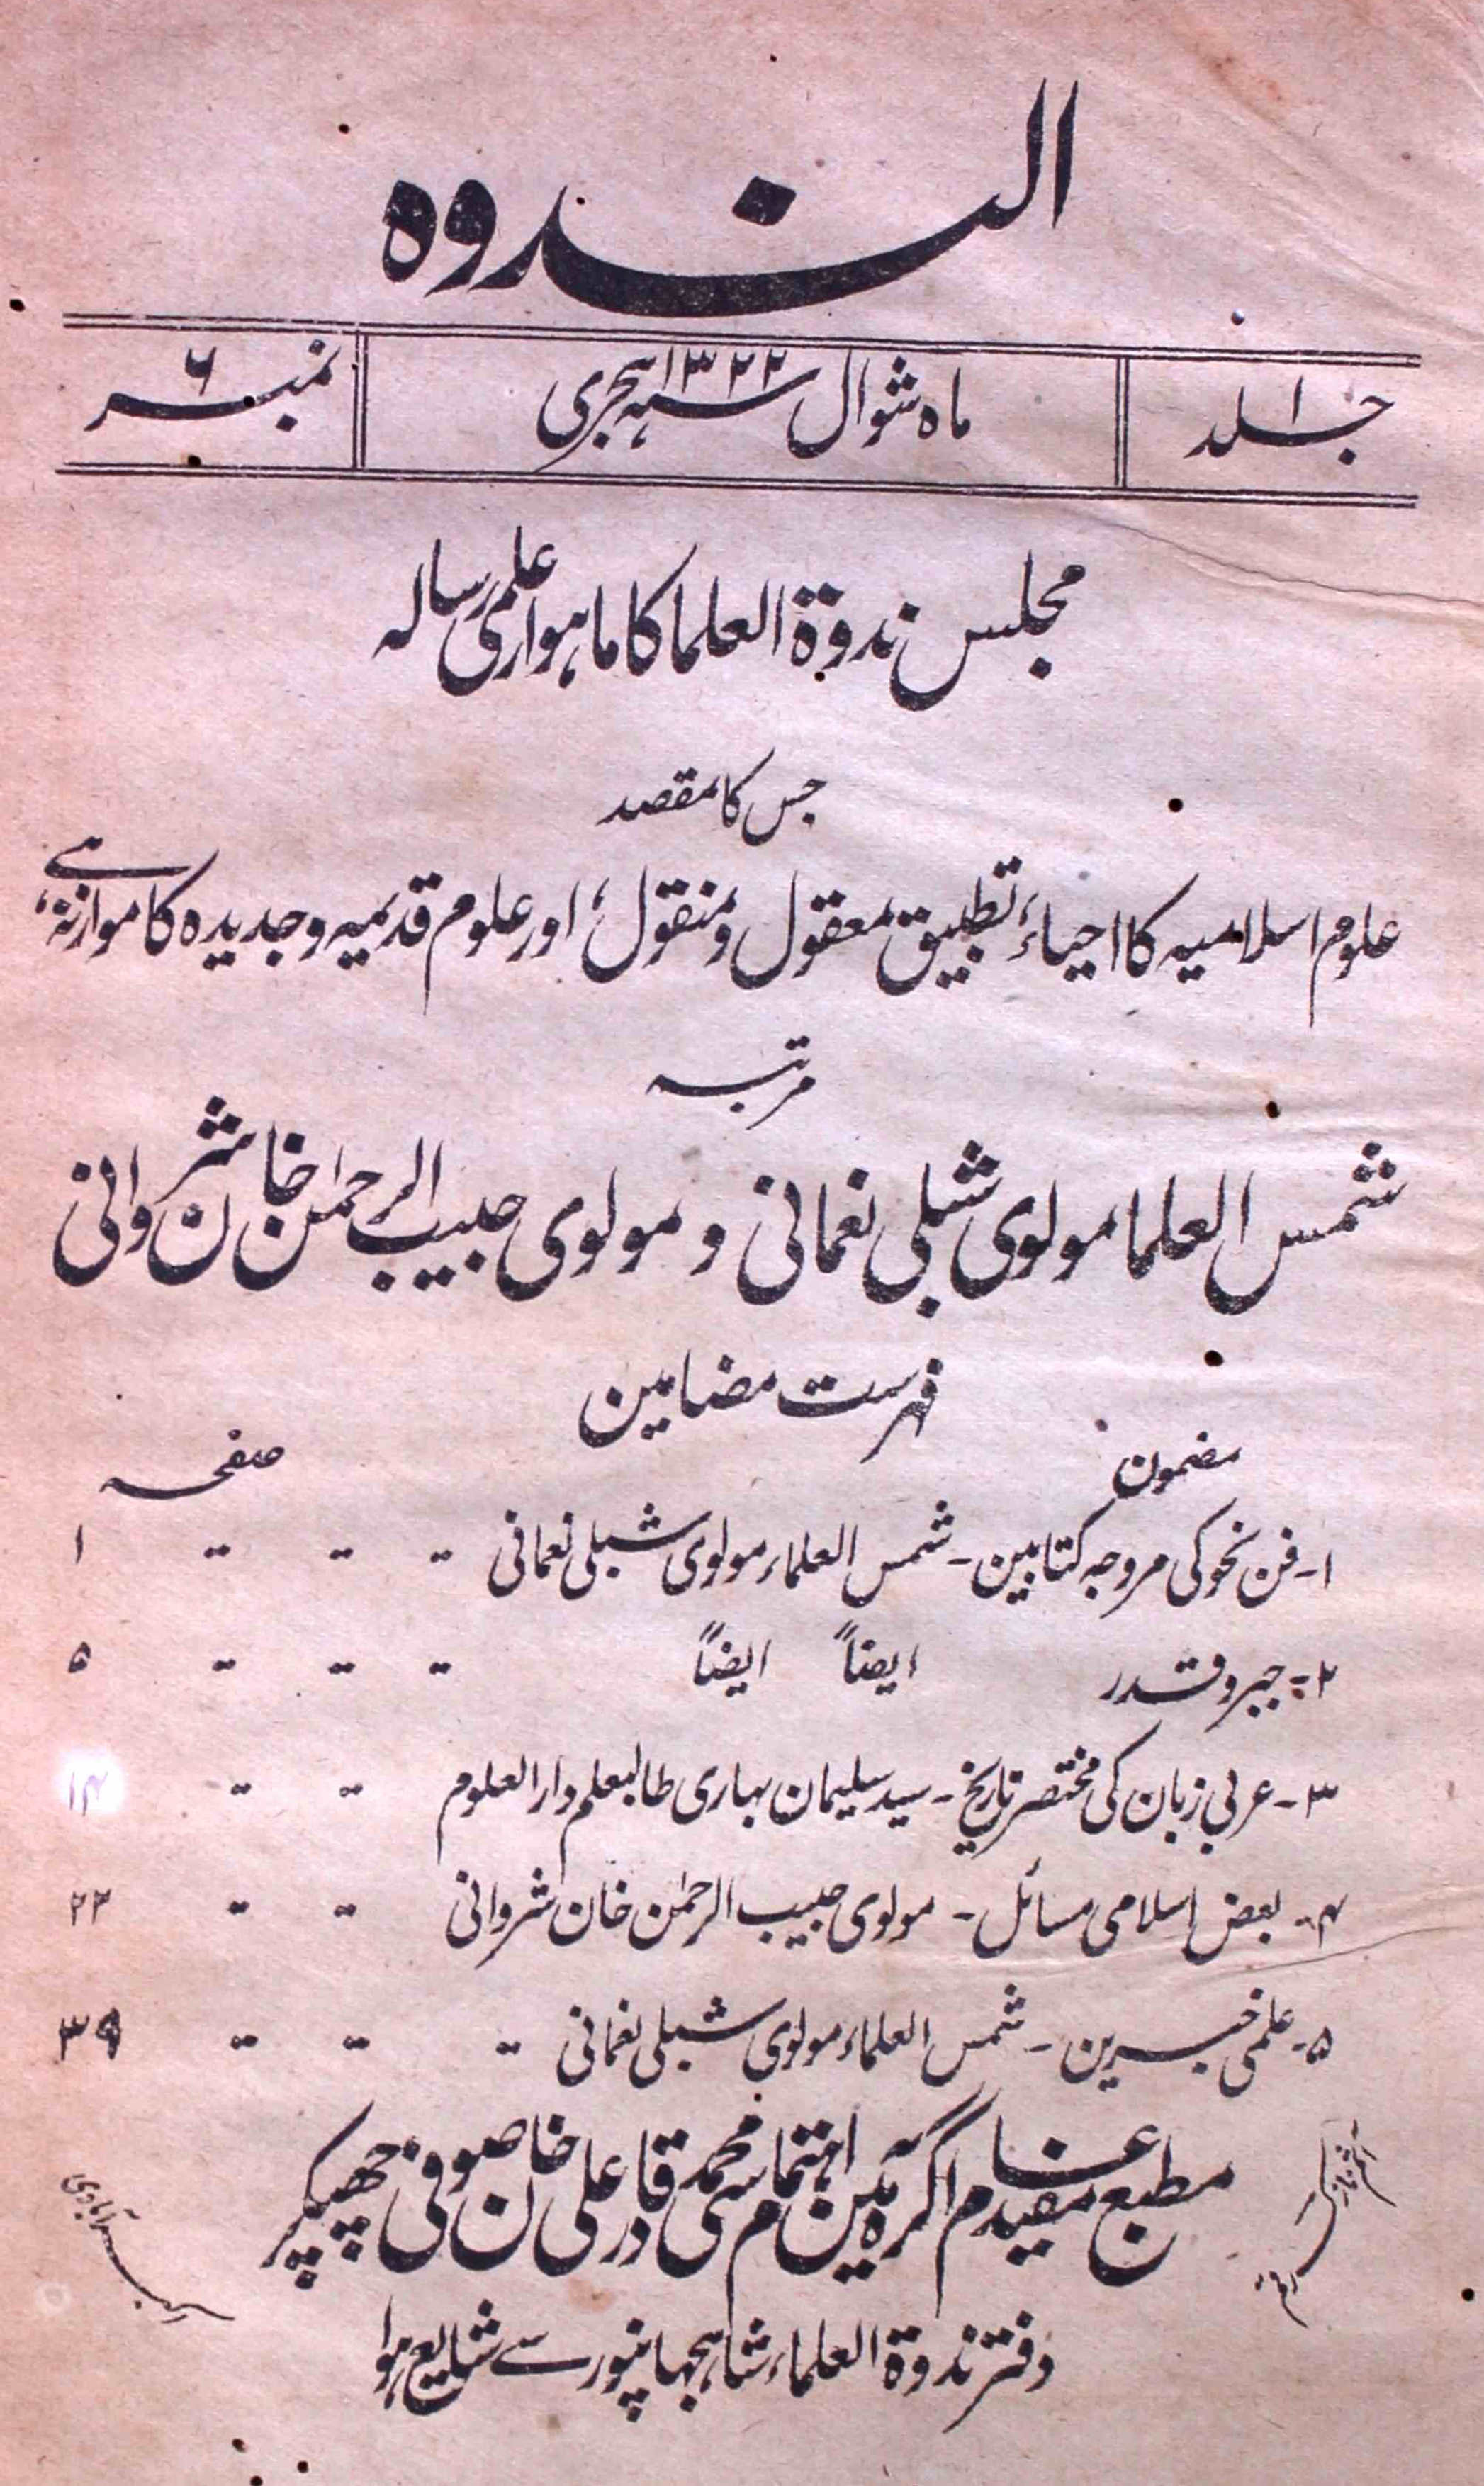 الندوہ
جلد ۱
ماہ شوال سنہ ۱۳۲۲ ہجری
نمبر ۶
مجلس ندوۃ العلما کا ماہواری علمی رسالہ
جس کا مقصد
علوم اسلامیہ کا احیاء، تطبیق معقول و منقول، اور علوم قدیمیہ و جدیدہ کا موازنہ ہے،
مرتبہ
شمس العلما مولوی شبلی نعمانی و مولوی حبیب الرحمٰن خان شروانی
فہرست مضامین
مضمون صفحہ
۱- فن نحو کی مروجہ کتابین - شمس العلماء مولوی شبلی نعمانی ۱
۲- جبر و قدر ایضاً ایضاً ۵
۳- عربی زبان کی مختصر تاریخ - سید سلیمان بہاری طالبعلم دارالعلوم ۱۴
۴- بعض اسلامی مسائل - مولوی حبیب الرحمٰن خان شروانی ۲۲
۵- علمی خبرین - شمس العلماء مولوی شبلی نعمانی ۳۹
مطبع مفید عام اگرہ مین باہتمام محمد قادر علی خان صوفی چھپکر
دفتر ندوۃ العلماء شاہجہانپور سے شایع ہوا